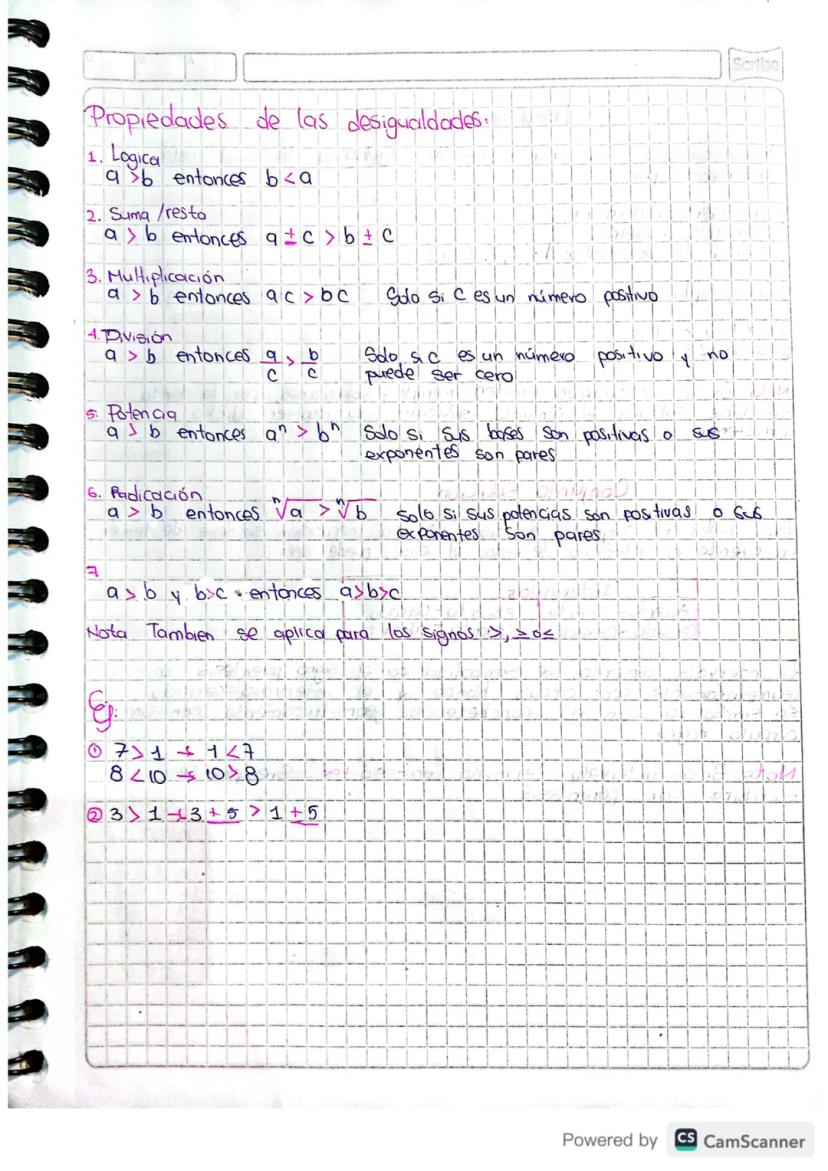 Scribe
Propiedades de las desigualdades.
1. Logica
a > b entonces b < a
2. Suma / resta
a > b entonces a ± c > b ± c
3. Multiplicación
a > b entonces ac > bc Solo si c es un número positivo
4. División
a > b entonces a/c > b/c Solo si c es un número positivo y no
puede ser cero
5. Potencia
a > b entonces aⁿ > bⁿ Solo si sus bases son positivas o sus
exponentes son pares
6. Radicación
a > b entonces ⁿ√a > ⁿ√b solo si sus potencias son positivas o sus
exponentes son pares
7
a > b y b > c entonces a > b > c
Nota Tambien se aplica para los signos >, ≥ o ≤
Ej:
① 7 > 1 → 1 < 7
8 < 10 → 10 > 8
② 3 > 1 → 3 + 5 > 1 + 5
Powered by CS CamScanner